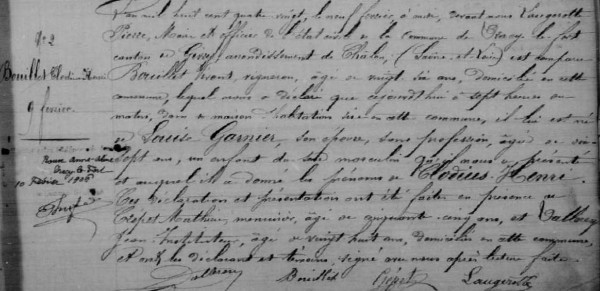 N° 2
Bouillet Clodius Henri
9 février.
10 février 1906
L'an mil huit cent quatre vingt, le neuf février, à midi, devant nous Laugerotte
Pierre, Maire et officier de l'état civil de la commune de Dracy le fort
canton de Givry, arrondissement de Chalon, (Saône-et-Loire) est comparu
Bouillet Vivant, vigneron, âgé de vingt six ans, domicilié en cette
commune, lequel nous a déclaré que aujourd'hui à sept heures du
matin, dans sa maison d'habitation sise en cette commune, il lui est né
de Louise Garnier, son épouse, sans profession, âgée de vingt
sept ans, un enfant du sexe masculin qu'il nous a présenté
et auquel il a donné les prénoms de Clodius-Henri.
Ces déclaration et présentation ont été faites en présence de
Crépet Mathieu, menuisier, âgé de cinquante cinq ans, et Dathery
Jean Instituteur, âgé de vingt huit ans, domiciliés en cette commune
et ont les déclarant et témoins, signé avec nous après lecture faite.
Bouillet Crépet Laugerotte